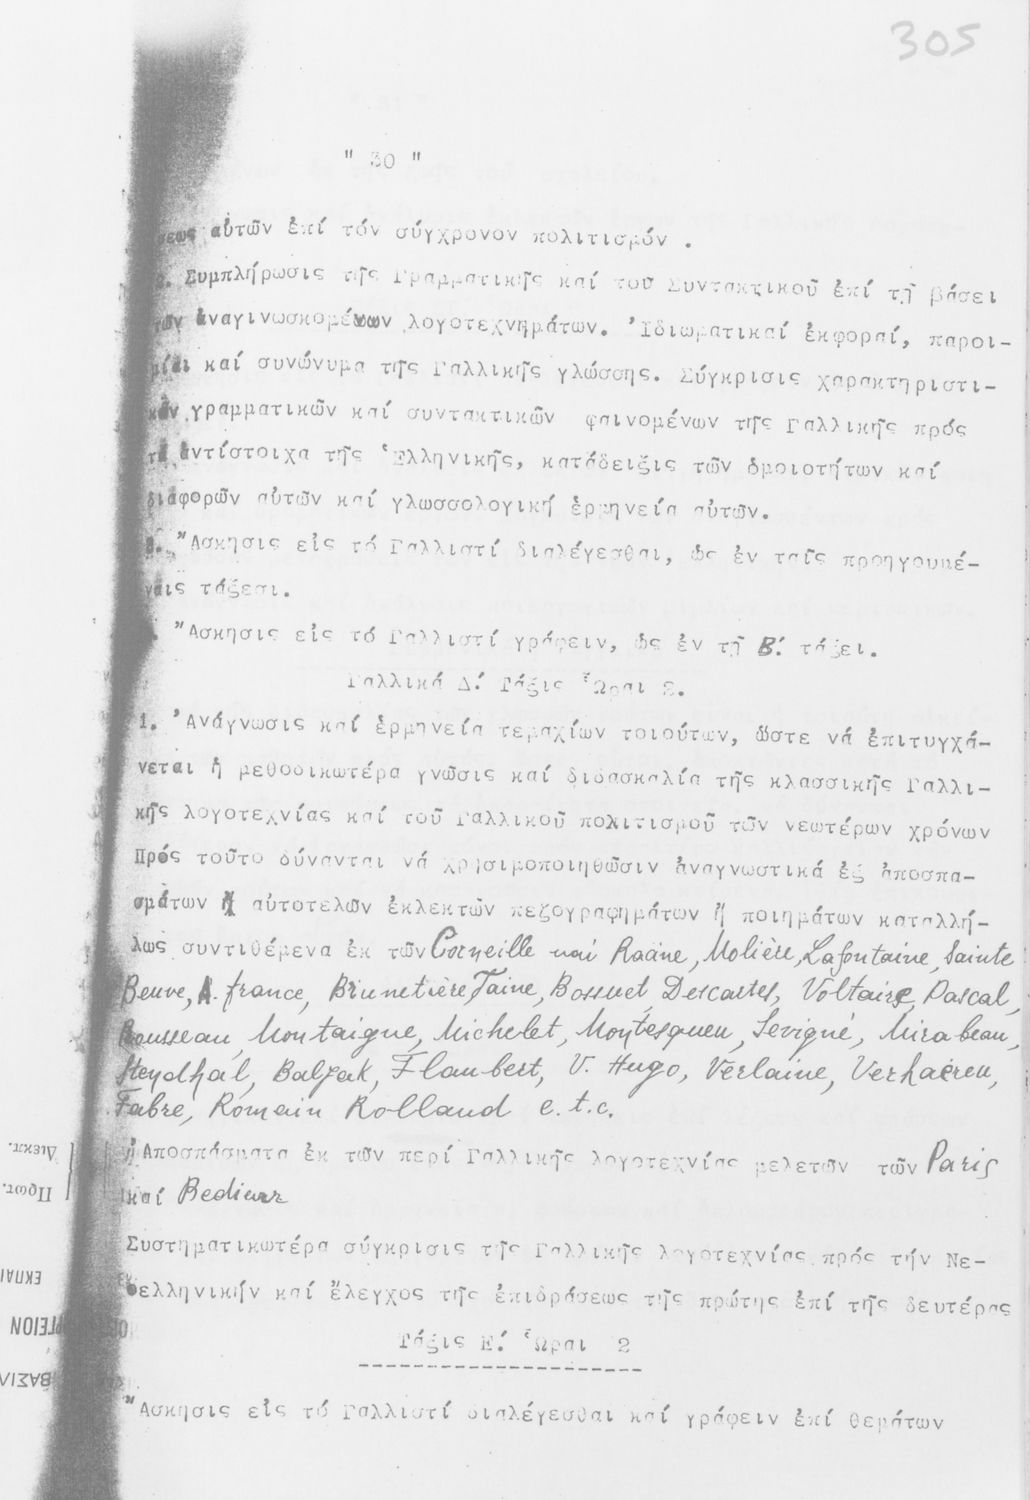 305
" 30 "
σεως αὐτῶν ἐπί τόν σύγχρονον πολιτισμόν .
2. Συμπλήρωσις τῆς Γραμματικῆς καί τοῦ Συντακτικοῦ ἐπί τῇ βάσει
τῶν ἀναγινωσκομένων λογοτεχνημάτων. Ἰδιωματικαί ἐκφοραί, παροι-
μίαι καί συνώνυμα τῆς Γαλλικῆς γλώσσης. Σύγκρισις χαρακτηριστι-
κῶν γραμματικῶν καί συντακτικῶν φαινομένων τῆς Γαλλικῆς πρός
τά ἀντίστοιχα τῆς Ἑλληνικῆς, κατάδειξις τῶν ὁμοιοτήτων καί
διαφορῶν αὐτῶν καί γλωσσολογική ἑρμηνεία αὐτῶν.
3. Ἄσκησις εἰς τό Γαλλιστί διαλέγεσθαι, ὡς ἐν ταῖς προηγουμέ-
ναις τάξεσι.
Ἄσκησις εἰς τό Γαλλιστί γράφειν, ὡς ἐν τῇ Β΄. τάξει.
Γαλλικά Δ΄. Τάξις Ὧραι 2.
1. Ἀνάγνωσις καί ἑρμηνεία τεμαχίων τοιούτων, ὥστε νά ἐπιτυγχά-
νεται ἡ μεθοδικωτέρα γνῶσις καί διδασκαλία τῆς κλασσικῆς Γαλλι-
κῆς λογοτεχνίας καί τοῦ Γαλλικοῦ πολιτισμοῦ τῶν νεωτέρων χρόνων
Πρός τοῦτο δύνανται νά χρησιμοποιηθῶσιν ἀναγνωστικά ἐξ ἀποσπα-
σμάτων ἤ αὐτοτελῶν ἐκλεκτῶν πεζογραφημάτων ἤ ποιημάτων καταλλή-
λως συντιθέμενα ἐκ τῶν Corneille καί Racine, Molière, Lafontaine, Sainte
Beuve, A. france, Brunetière Taine, Bossuet Descartes, Voltaire, Pascal,
Rousseau, Montaigne, Michelet, Montesqueu, Sevigné, Mirabeau,
Stendhal, Balzak, Flaubert, V. Hugo, Verlaine, Verhaeren,
Fabre, Romain Rolland e.t.c.
ἤ Ἀποσπάσματα ἐκ τῶν περί Γαλλικῆς λογοτεχνίας μελετῶν τῶν Paris
καί Bedier
Συστηματικωτέρα σύγκρισις τῆς Γαλλικῆς λογοτεχνίας πρός τήν Νε-
οελληνικήν καί ἔλεγχος τῆς ἐπιδράσεως τῆς πρώτης ἐπί τῆς δευτέρας
Τάξις Ε΄. Ὧραι 2
Ἄσκησις εἰς τό Γαλλιστί διαλέγεσθαι καί γράφειν ἐπί θεμάτων
Διεκπ.
Πρωτ.
ΕΚΠΑΙ
ΒΑΣΙΛ